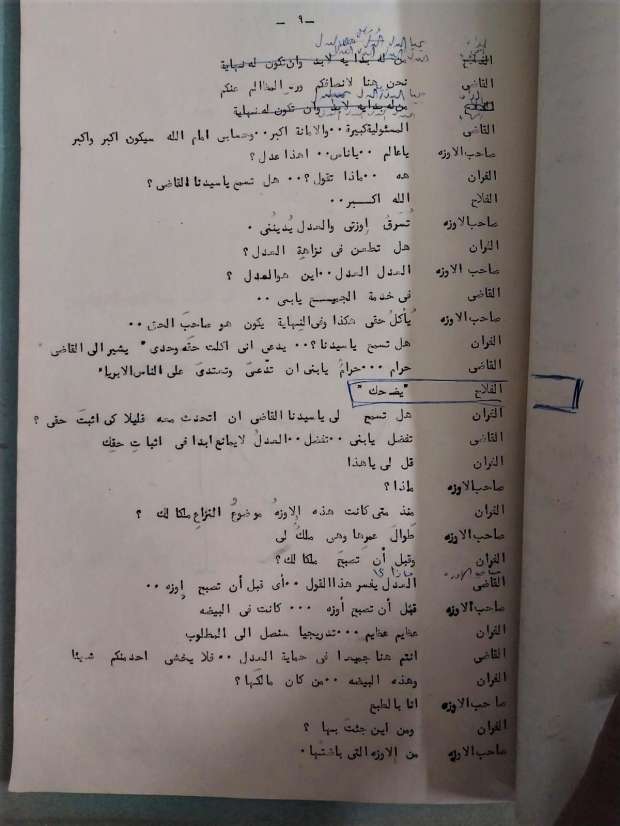 ـ ٩ ـ
يحيا العدل
من له بدايه لابد وان تكون له نهاية
القاضى نحن هنا لانصافكم ورد المظالم عنكم
من له بدايه لابد وان تكون له نهاية
القاضى المسئولية كبيرة ٠٠ والامانة اكبر ٠٠ وحسابى امام الله سيكون اكبر واكبر
صاحب الاوزه ياعالم ٠٠ ياناس ٠٠ اهذا عدل ؟
الفران هه ٠٠ ماذا تقول ؟ ٠٠ هل تسمع ياسيدنا القاضى ؟
الفلاح الله اكــبر ٠٠
صاحب الاوزه تُسرَقُ إوزتى والعدل يُدينُنى ٠
الفران هل تطعن فى نزاهةِ العدل ؟
صاحب الاوزه العدل العدل ٠٠ اين هو العدل ؟
القاضى فى خدمة الجميــع يابنى ٠٠
صاحب الاوزه يُؤكلُ حقى هكذا وفى النهاية يكون هو صاحبَ الحق ٠٠
الفران هل تسمع ياسيدنا ؟ ٠٠ يدعى انى اكلت حقه وحدى " يشير الى القاضى "
القاضى حرام ٠٠٠ حرامٌ يابنى ان تدّعىَ وتعتدىَ على الناس الابرياء
الفلاح " يضحك "
الفران هل تسمح لى ياسيدنا القاضى ان اتحدث معه قليلا كى اثبتَ حقى ؟
القاضى تفضل يابنى ٠٠ تفضل ٠٠ العدلُ لايمانع ابدا فى اثباتِ حقِك
الفران قل لى ياهذا
صاحب الاوزه ماذا ؟
الفران منذ متى كانت هذه الإوزهُ موضوعُ النزاعِ ملكا لك ؟
صاحب الاوزه طَوالَ عمرِها وهى ملكٌ لى
الفران وقبل أن تصبحَ ملكا لك ؟
صاحب الاوزه ماذا ؟!
القاضى العدل يفسر هذا القول ٠٠ أى قبل أن تصبح إوزه ٠٠
صاحب الاوزه قبْل أن تصبح أوزه ٠٠٠ كانت فى البيضه
الفران عظيم عظيم ٠٠٠ تدريجيا سنصل الى المطلوب
القاضى انتم هنا جميعا فى حماية العدل ٠٠ فلا يخشى احد منكم شيئا
الفران وهذه البيضه ٠٠ من كان مالكَها ؟
صاحب الاوزه انا بالطبع
الفران ومن اين جئتَ بها ؟
صاحب الاوزه من الاوزه التى باضتها ٠